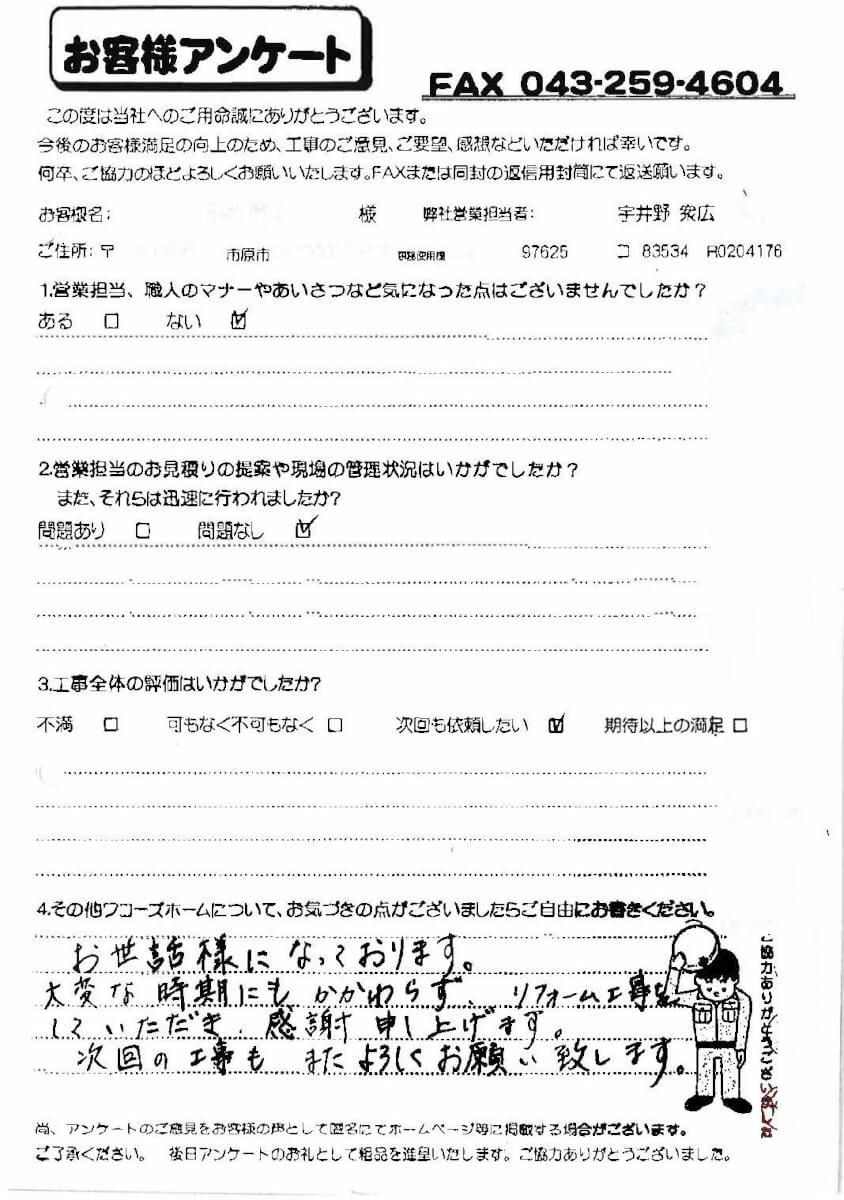 お客様アンケート
FAX 043-259-4604
この度は当社へのご用命誠にありがとうございます。
今後のお客様満足の向上のため、工事のご意見、ご要望、感想などいただければ幸いです。
何卒、ご協力のほどよろしくお願いいたします。FAXまたは同封の返信用封筒にて返送願います。
お客様名: 様 弊社営業担当者: 宇井野
ご住所:〒 市原市 97625 コ 83534 R0204176
1.営業担当、職人のマナーやあいさつなど気になった点はございませんでしたか?
ある □ ない ☑
2.営業担当のお見積りの提案や現場の管理状況はいかがでしたか?
また、それらは迅速に行われましたか?
問題あり □ 問題なし ☑
3.工事全体の評価はいかがでしたか?
不満 □ 可もなく不可もなく □ 次回も依頼したい ☑ 期待以上の満足 □
4.その他ワコーズホームについて、お気づきの点がございましたらご自由にお書きください。
お世話様になっております。
大変な時期にもかかわらず、リフォーム工事を
していただき、感謝申し上げます。
次回の工事も またよろしくお願い致します。
ご協力ありがとうございました
尚、アンケートのご意見をお客様の声として匿名にてホームページ等に掲載する場合がございます。
ご了承ください。 後日アンケートのお礼として粗品を進呈いたします。ご協力ありがとうございました。